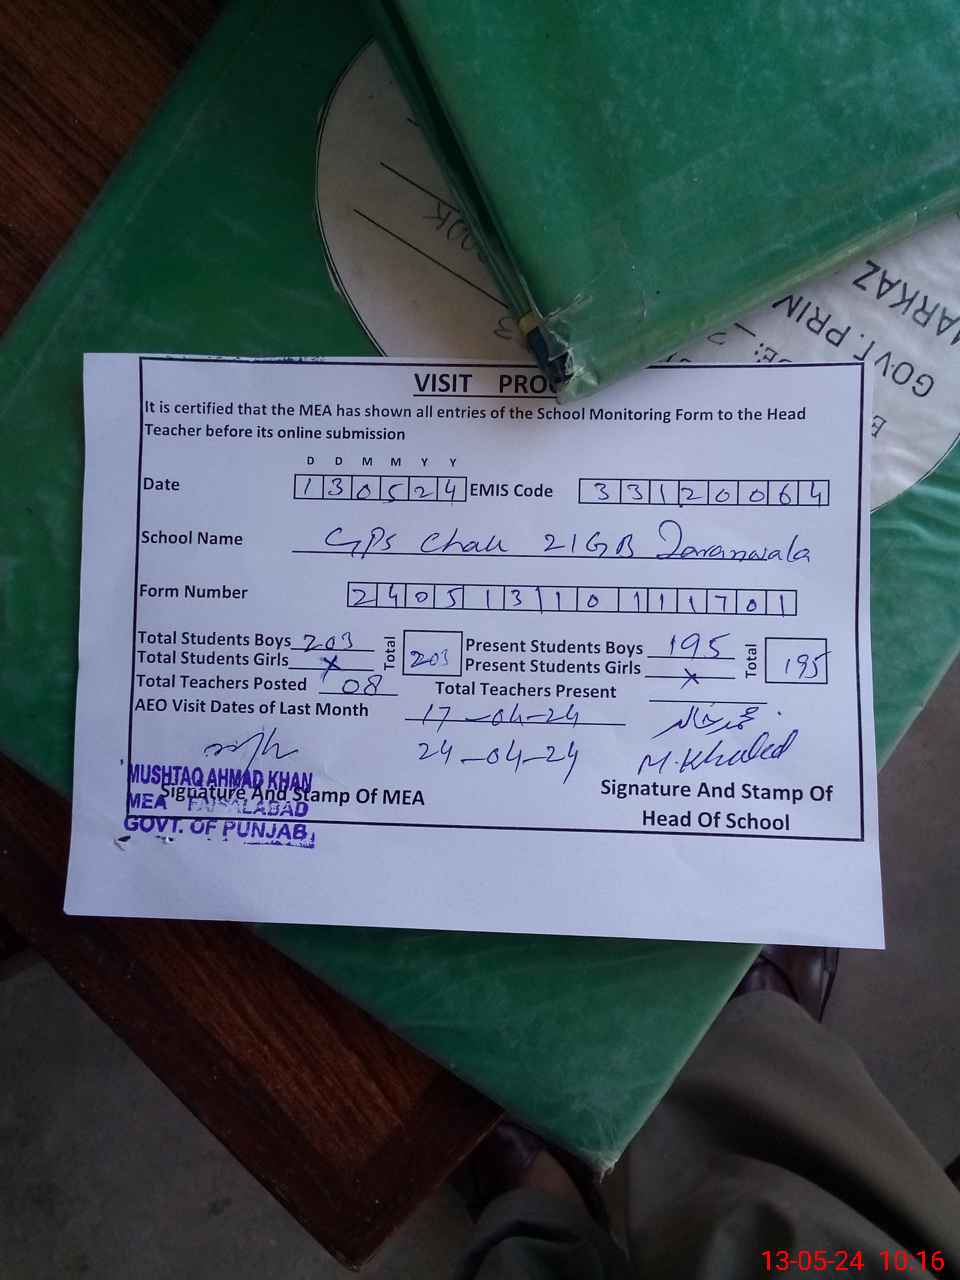 VISIT PRO
It is certified that the MEA has shown all entries of the School Monitoring Form to the Head
Teacher before its online submission
D D M M Y Y
Date 1 3 0 5 2 4 EMIS Code 3 3 1 2 0 0 6 4
School Name GPS Chak 21GB Jaranwala
Form Number 2 4 0 5 1 3 1 1 0 1 1 1 7 0 1
Total Students Boys 203 Total 203 Present Students Boys 195 Total 195
Total Students Girls x Present Students Girls x
Total Teachers Posted 08 Total Teachers Present
AEO Visit Dates of Last Month 17-04-24
24-04-24 M.Khaled
MUSHTAQ AHMAD KHAN
MEA FAISALABAD
GOVT. OF PUNJAB
Signature And Stamp Of MEA
Signature And Stamp Of
Head Of School
GOVT. PRIM
MARKAZ
13-05-24 10:16